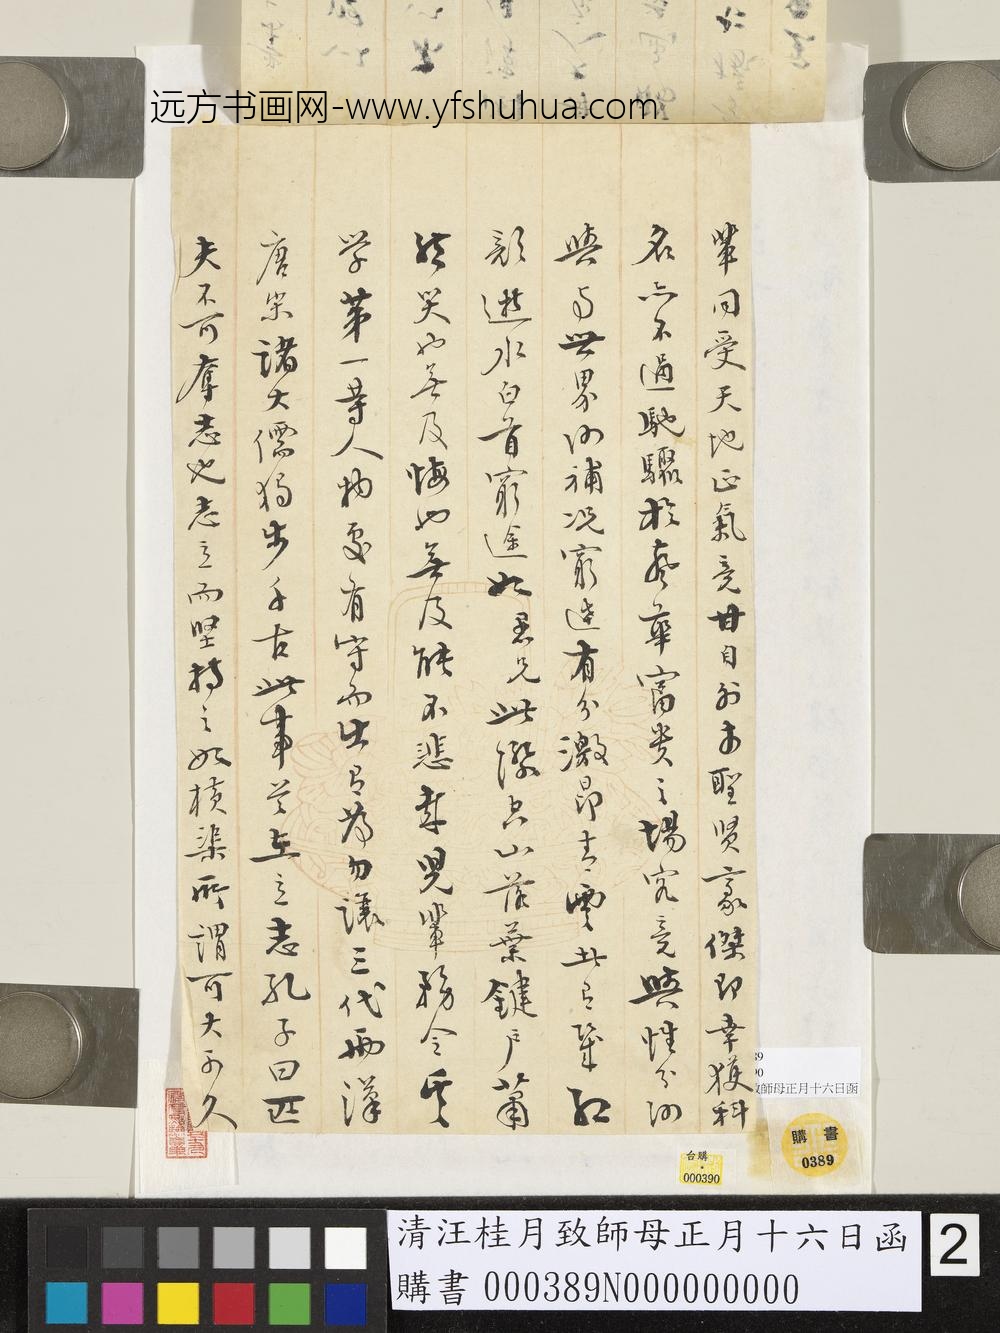 远方书画网-www.yfshuhua.com
輩同受天地正氣竟甘自外於聖賢豪傑即幸獲科
名亦不過馳驟於聲華富貴之場究竟與性分何
與与世界何補况窮達有分激昂青雲者有幾紅
顏逝水白首窮途如愚兄此際空山落葉鍵戶蕭
然哭也無及悔也無及能不悲哉兒輩務令其
学第一等人物處有守而出有為勿讓三代兩漢
唐宋諸大儒獨步千古此事莫先立志孔子曰匹
夫不可奪志也志立而堅持之如橫渠所謂可大可久
致師母正月十六日函
購書
0389
台購
000390
清汪桂月致師母正月十六日函
購書 000389N000000000
2